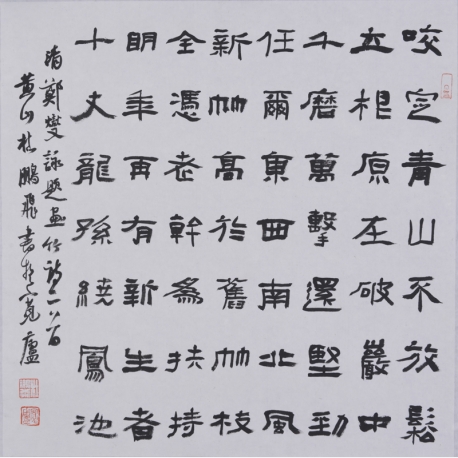 咬定青山不放鬆
立根原在破巖中
千磨萬擊還堅勁
任爾東西南北風
新竹高於舊竹枝
全憑老幹為扶持
明年再有新生者
十丈龍孫繞鳳池
清鄭燮詠題畫竹詩二首
黃山杜鵬飛書於寬廬